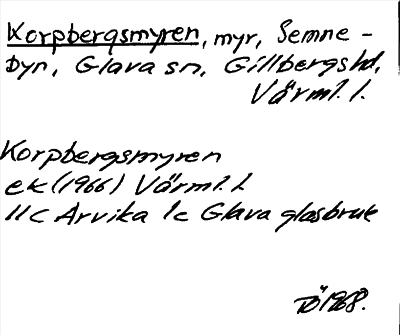 Korpbergsmyren, myr, Semne-
byn, Glava sn, Gillbergs hd,
Värml. l.
Korpbergsmyren
ek (1966) Värml. l.
11C Arvika 1c Glava glasbruk
TÖ 1968.